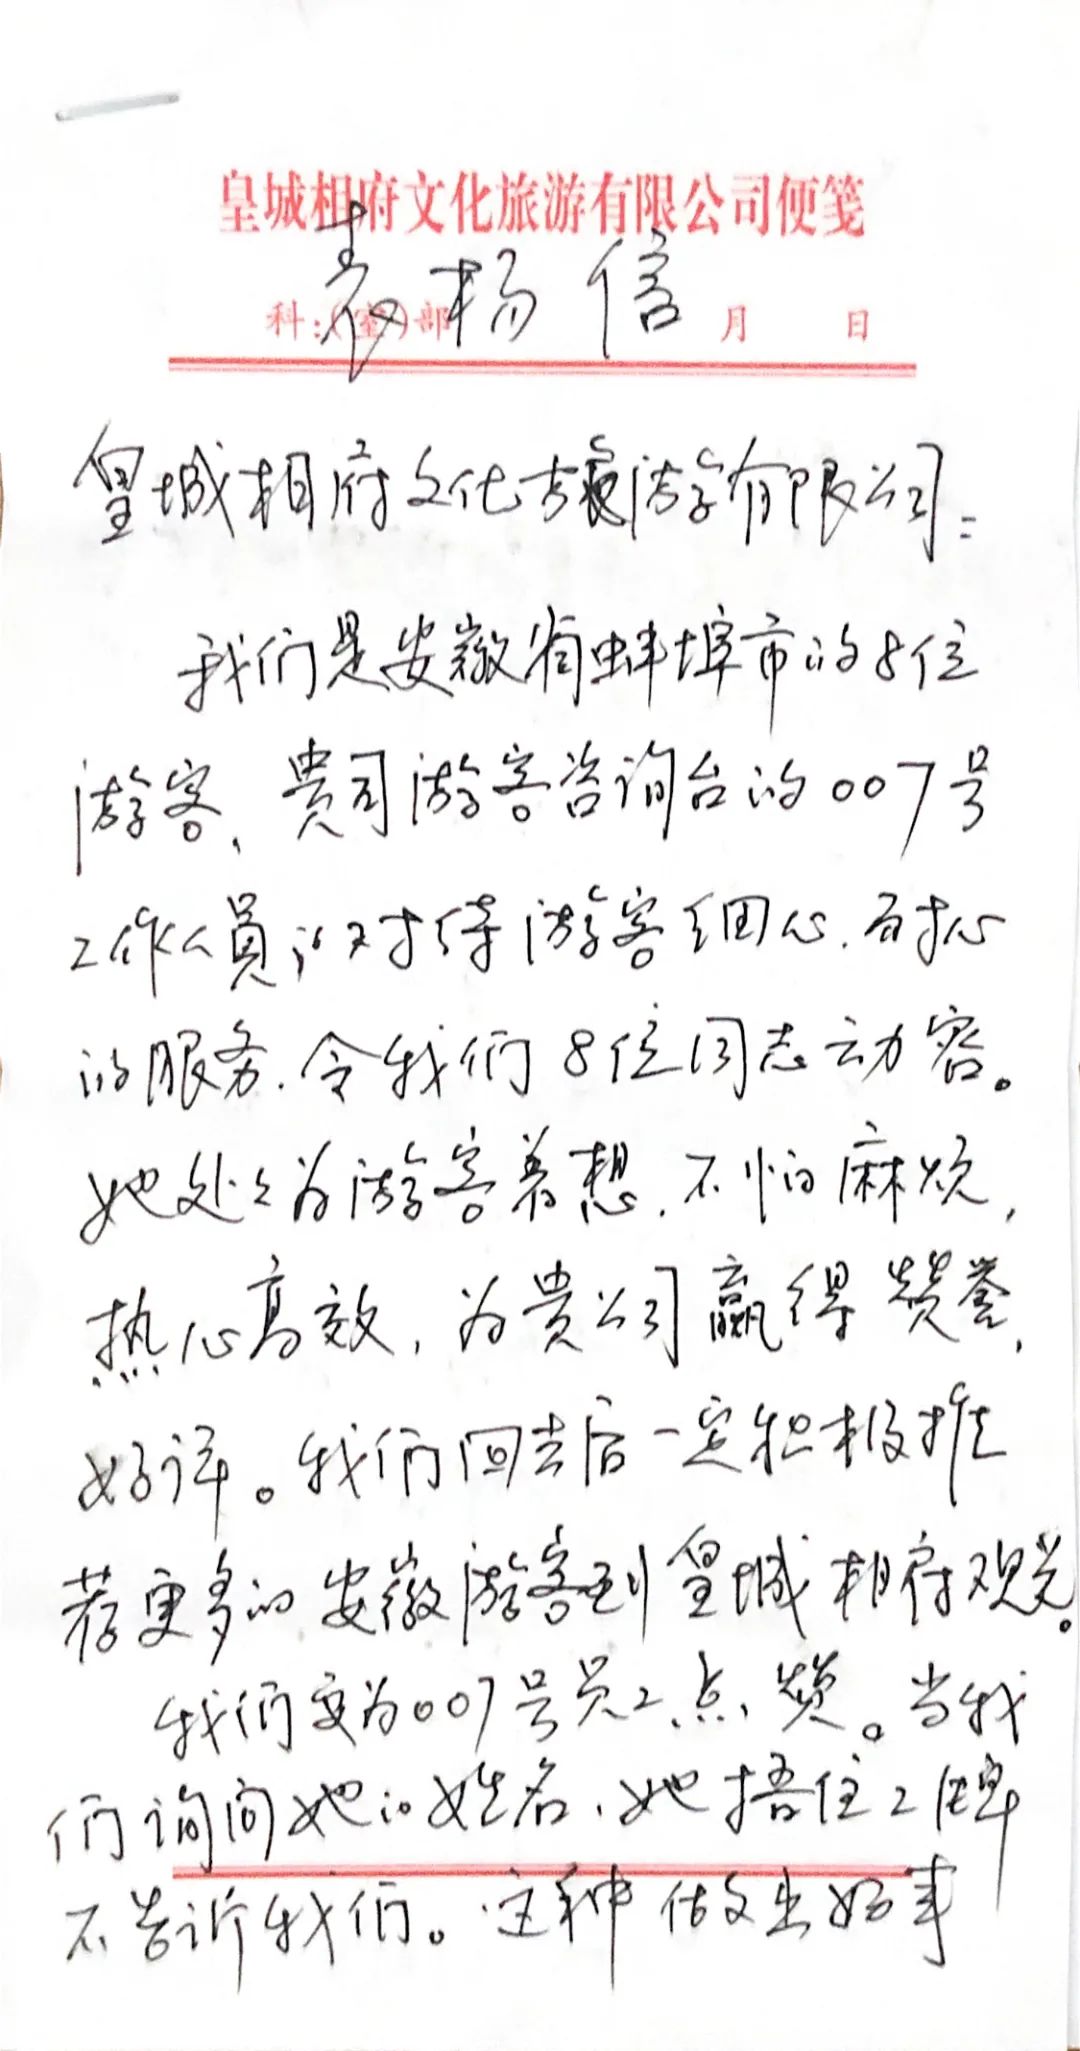 皇城相府文化旅游有限公司便笺
科:(室)部 月 日
表杨信
皇城相府文化旅游有限公司:
我们是安徽省蚌埠市的8位
游客、贵司游客咨询台的007号
工作人员的对待游客细心、耐心
的服务、令我们8位同志动容。
她处处为游客着想、不怕麻烦,
热心高效,为贵公司赢得赞誉、
好评。我们回去后一定积极推
荐更多的安徽游客到皇城相府观光。
我们要为007号员工点赞。当我
们询问她的姓名、她捂住工牌
不告诉我们。这种做出好事